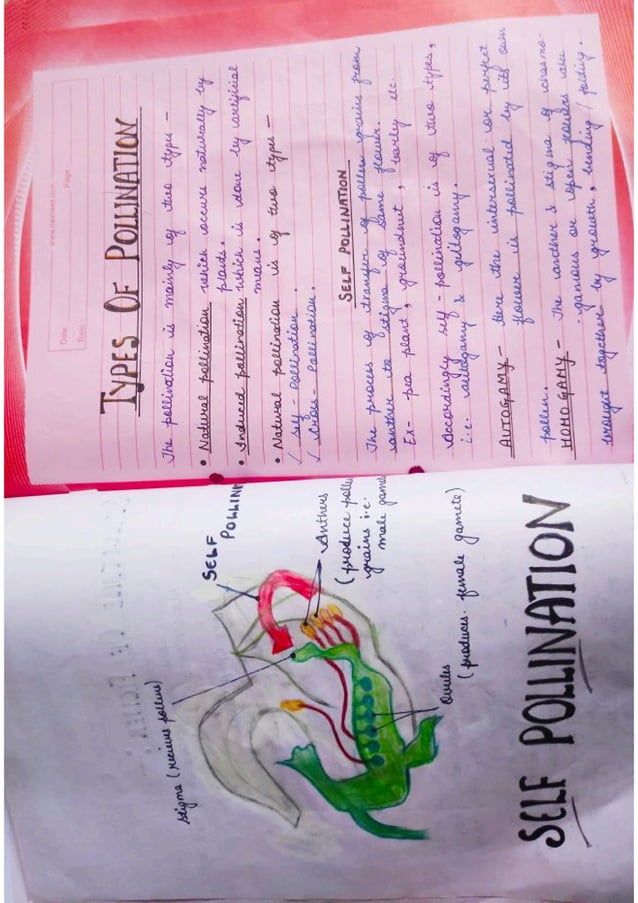 www.navneet.com
Date
Page
Topic
TYPES OF POLLINATION
The pollination is mainly of two types -
• Natural pollination which occurs naturally by
plants.
• Induced pollination which is done by artificial
means.
• Natural pollination is of two types -
✓ self - Pollination.
✓ Cross - Pollination.
SELF POLLINATION
The process of transfer of pollen grains from
anther to stigma of same flower.
Ex- pea plant, groundnut, barley etc.
Accordingly self-pollination is of two types,
i.e. autogamy & geitogamy.
AUTOGAMY - Here the intersexual or perfect
flower is pollinated by its own
pollen.
HOMOGAMY - The anther & stigma of chasmo-
-gamous or open flowers are
brought together by growth, bending / folding.
SELF
POLLIN
Anthers
(produce polle
grains i.e.
male game
Stigma (recieves pollens)
Ovules
(produces female gamete)
SELF POLLINATION